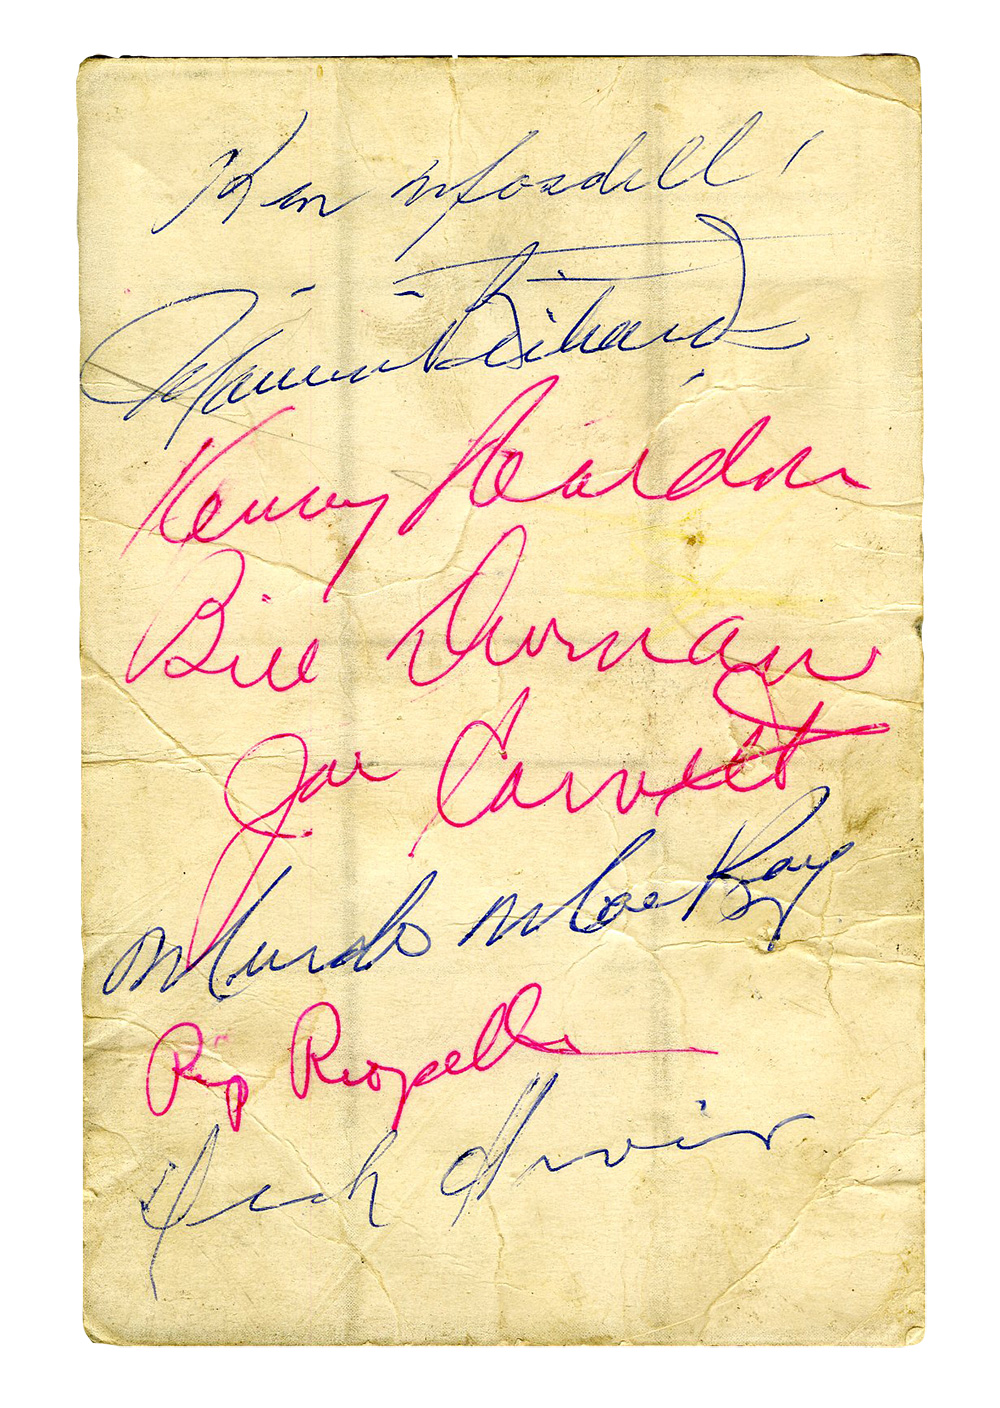 Ken Mosdell
Maurice Richard
Kenny Reardon
Bill Durnan
Joe Carveth
Murdo MacKay
Rip Riopelle
Dick Irvin